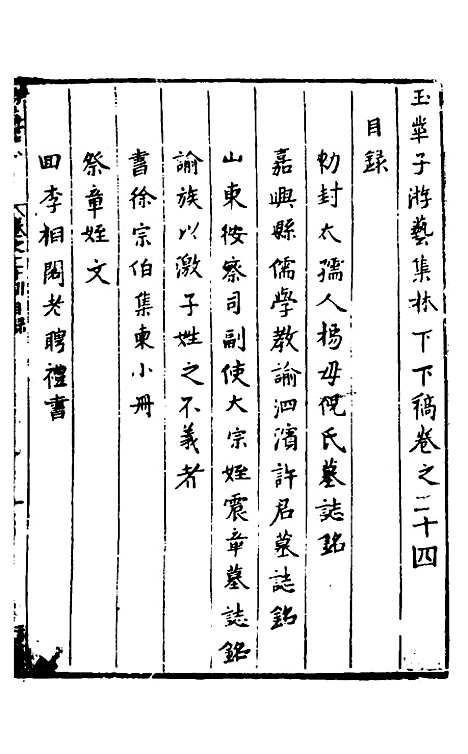 玉華子游藝集林下下稿卷之二十四
目録
勅封太孺人楊母倪氏墓誌銘
嘉興縣儒學教諭泗濱許君墓誌銘
山東按察司副使大宗姪震章墓誌銘
諭族以激子姪之不義者
書徐宗伯集東小冊
祭章姪文
回李相閣老聘禮書